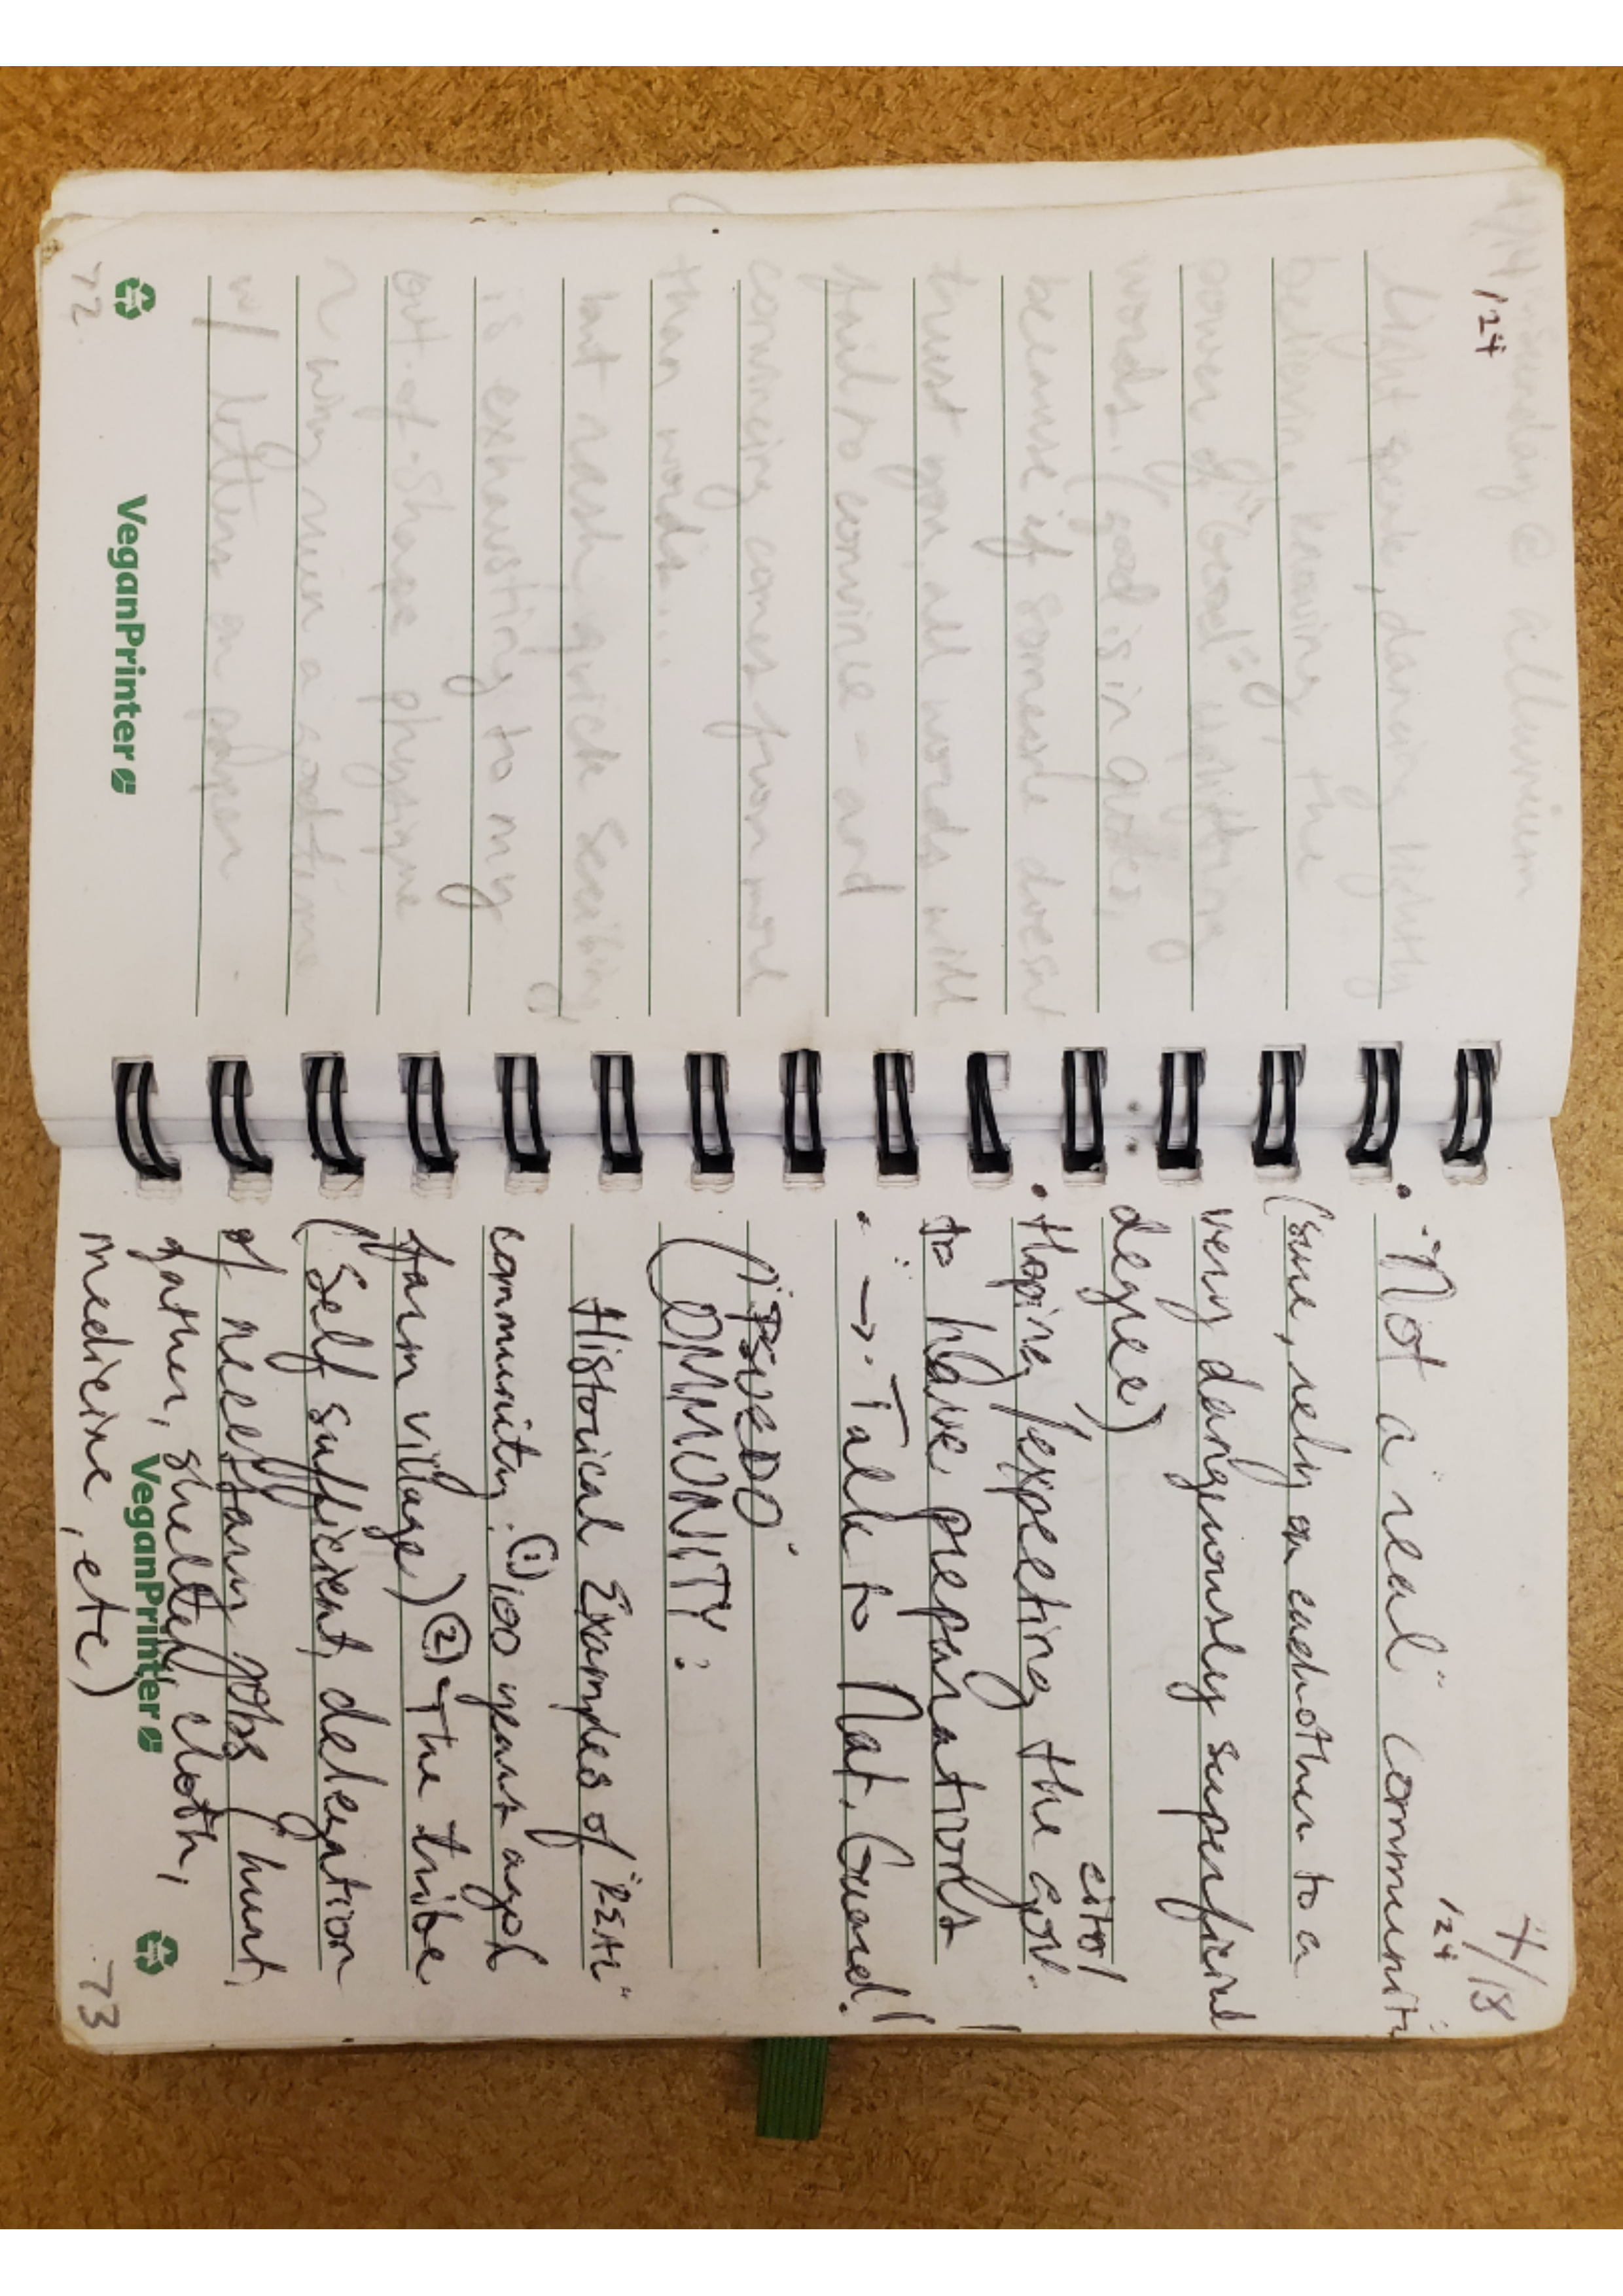 4/14/24 Sunday @ allumium
light speak, dancing lightly
believing, knowing, the
power of "Good" uplifting
words. (good is in quotes,
because if someone doesnt
trust you, all words will
fail to convince - and
convincing comes from more
than words...
but rash, quick scribing
is exhausting to my
out-of-shape physique
w/ letters on paper
72
VeganPrinter
4/18
/24
• "Not a "real" communit
(sure, rely on eachother to a
very dangerously superficial
degree)
• Hoping/expecting the gov.
citol
to have preparations
→ Talk to Nat. Guard!
("PSUEDO"
COMMUNITY:
Historical Examples of "REAL"
community: ① 100 years ago
farm village) ② The tribe
(Self sufficient, delegation
of necessary jobs (hunt,
gather, shelter, cloth,
medicine, etc)
VeganPrinter
73